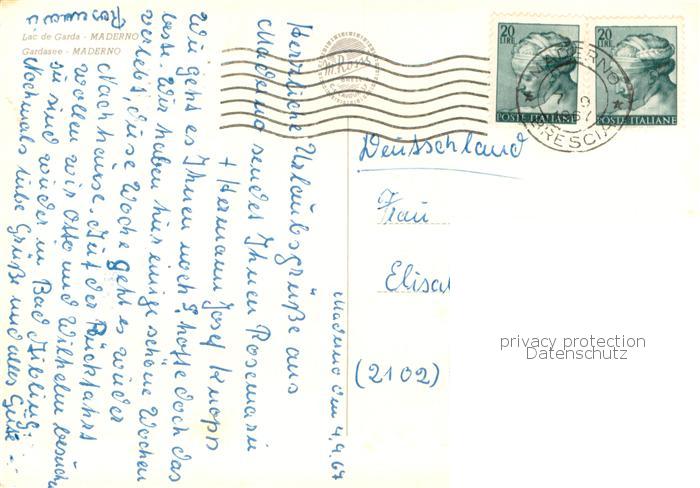 Lac de Garda - MADERNO
Gardasee - MADERNO
Maderno den 4.9.67
Herzliche Urlaubsgrüße aus
Maderno sendet Ihnen Rosemarie
+ Hermann Josef Knopp
Wie geht es Ihnen noch?, hoffe doch das
beste. Wir haben hier einige schöne Wochen
verlebt, diese Woche geht es wieder
Nach hause. Auf der Rückfahrt
wollen wir Otto und Wilhelm besuchen
sie sind wieder in Bad Aibling.
Nochmals liebe Grüße und alles Gute
20
LIRE
POSTE ITALIANE
20
LIRE
POSTE ITALIANE
MADERNO
BRESCIA
Deutschland
Frau
Elisa
(2102)
privacy protection
Datenschutz